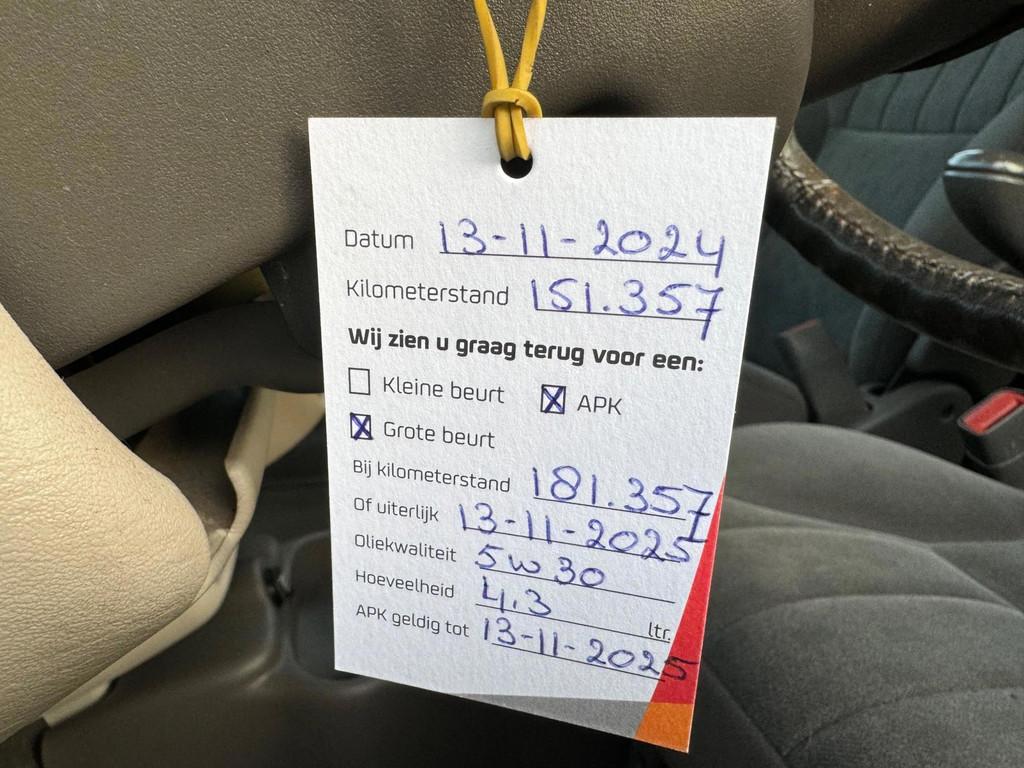 Datum 13-11-2024
Kilometerstand 151.357
Wij zien u graag terug voor een:
Kleine beurt APK
Grote beurt
Bij kilometerstand 181.357
Of uiterlijk 13-11-2025
Oliekwaliteit 5w30
Hoeveelheid 4.3 ltr.
APK geldig tot 13-11-2025